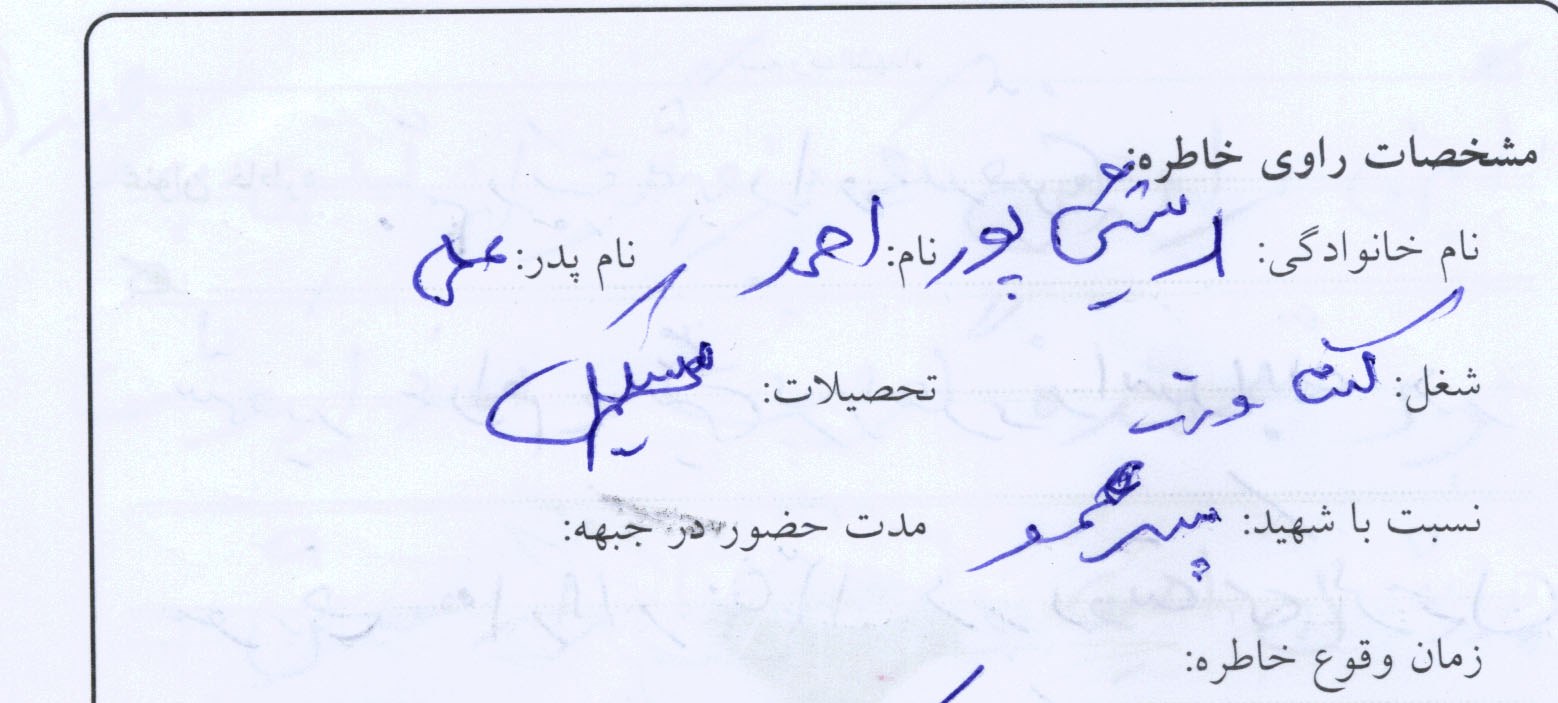 مشخصات راوی خاطره:
نام خانوادگی: پور نام: احمد نام پدر: علی
شغل: تحصیلات: سیکل
نسبت با شهید: پسر عمو مدت حضور در جبهه:
زمان وقوع خاطره: